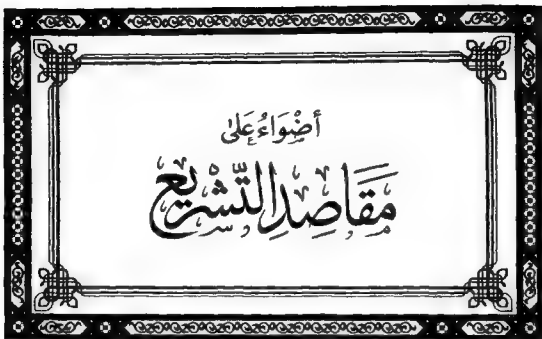 أَضْوَاءُ عَلَىٰ
مَقَاصِدِ التَّشْرِيعِ